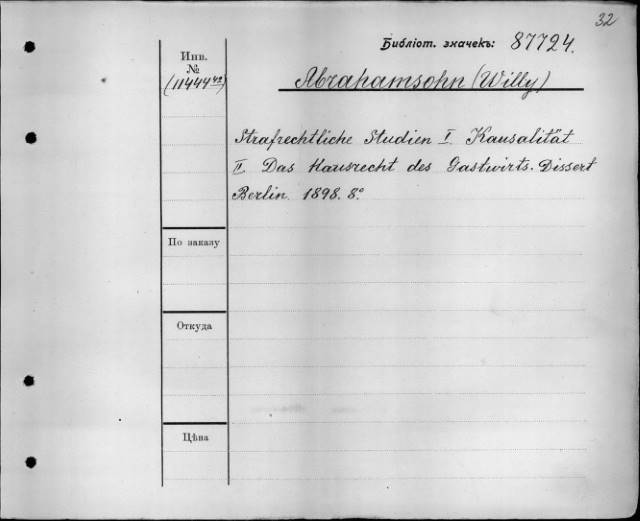 32
Библіот. значекъ: 87724.
Инв.
№
(11444 42)
Abrahamsohn (Willy)
Strafrechtliche Studien I. Kausalität
II. Das Hausrecht des Gastwirts. Dissert
Berlin 1898. 8º
По заказу
Откуда
Цѣна